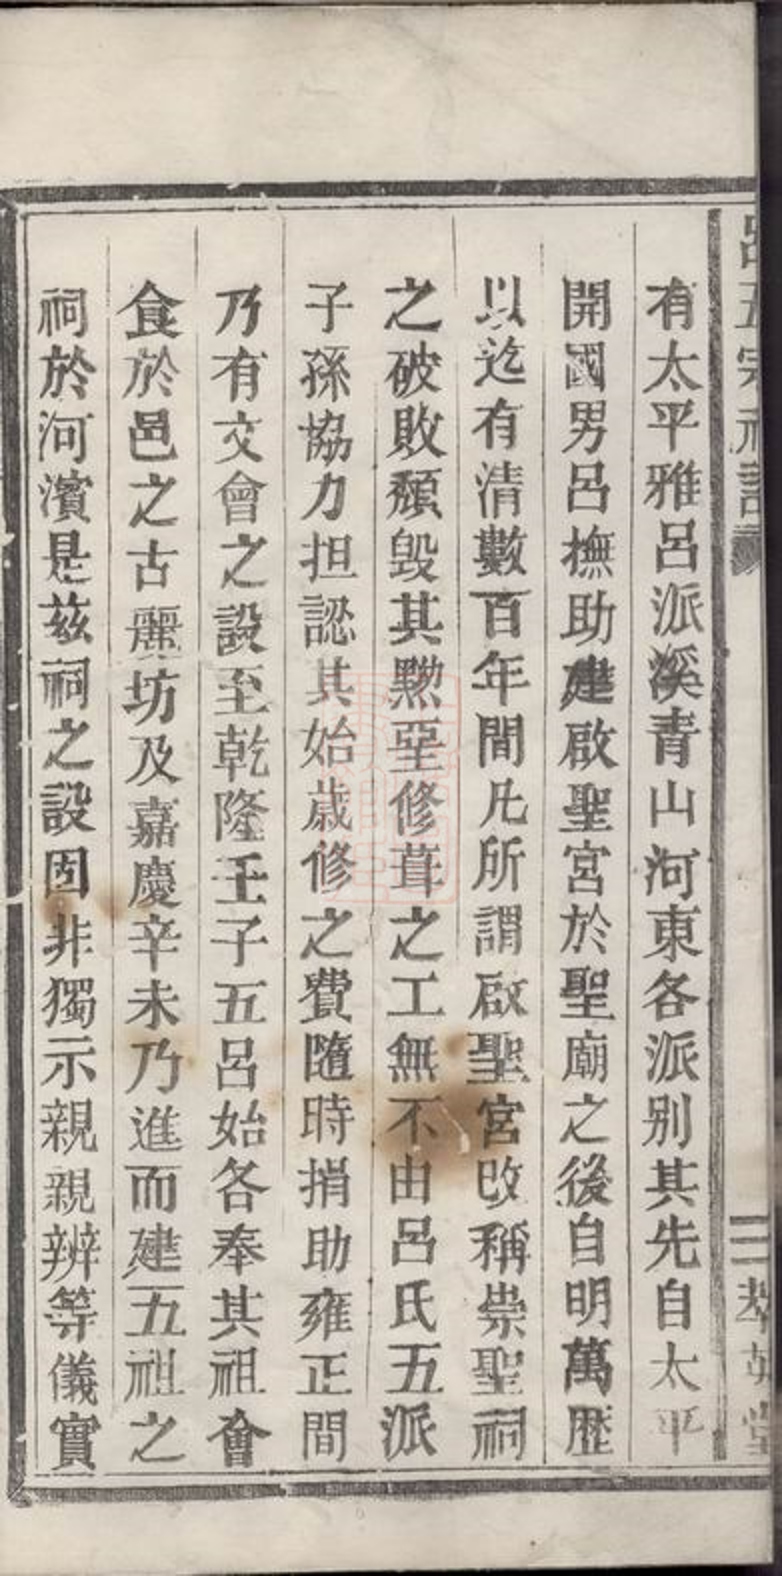 呂五宗祠記
有太平雅呂派溪青山河東各派別其先自太平
開國男呂撫助建啟聖宮於聖廟之後自明萬歷
以迄有清數百年間凡所謂啟聖宮改稱崇聖祠
之破敗頹毀其黝堊修葺之工無不由呂氏五派
子孫協力担認其始歲修之費隨時捐助雍正間
乃有文會之設至乾隆壬子五呂始各奉其祖會
食於邑之古麗坊及嘉慶辛未乃進而建五祖之
祠於河濱是茲祠之設固非獨示親親辨等儀實